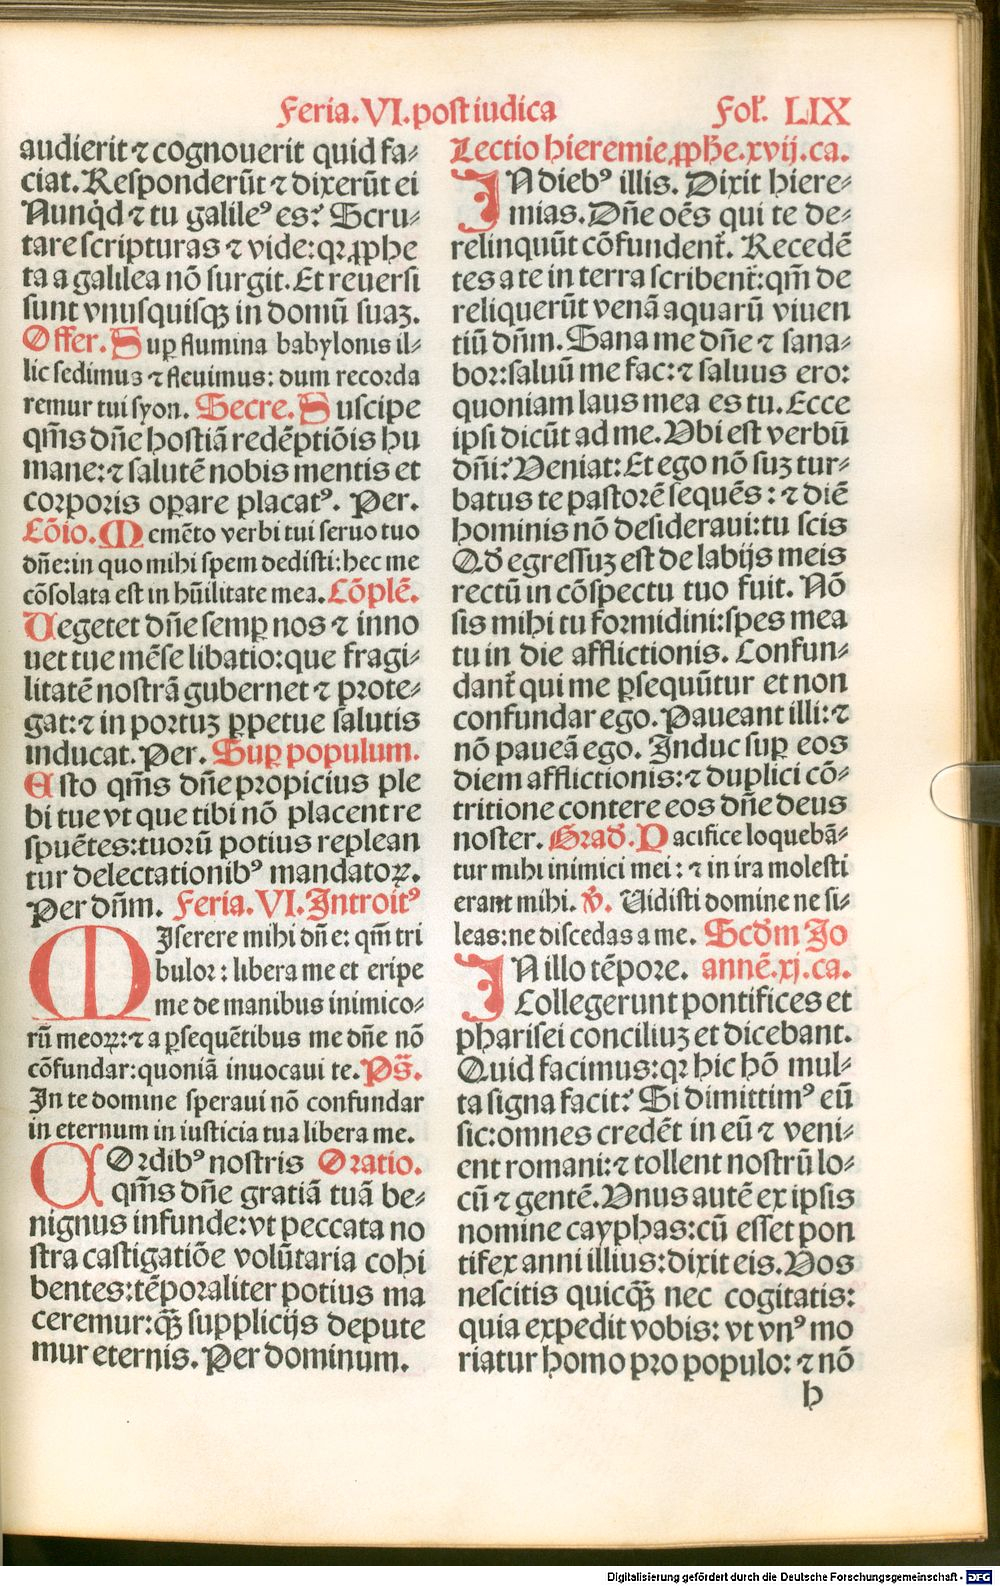 Feria. VI. post iudica Fol'. LIX
audierit ⁊ cognouerit quid fa⸗
ciat. Responderũt ⁊ dixerũt ei
Nunq̇d ⁊ tu galileꝰ es? Scru⸗
tare scripturas ⁊ vide: qꝛ ꝓphe
ta a galilea nõ surgit. Et reuersi
sunt vnusquisqꝫ in domũ suaꝫ.
Offer. Suꝑ flumina babylonis il⸗
lic sedimuꝫ ⁊ fleuimus: dum recorda
remur tui syon. Secre. Suscipe
q̃m̃s dñe hostiã redẽptiõis hu
mane: ⁊ salutẽ nobis mentis et
corporis oꝑare placatꝰ. Per.
Cõio. Memẽto verbi tui seruo tuo
dñe: in quo mihi spem dedisti: hec me
cõsolata est in hũilitate mea. Cõplẽ.
Vegetet dñe semꝑ nos ⁊ inno
uet tue mẽse libatio: que fragi⸗
litatẽ nostrã gubernet ⁊ prote⸗
gat: ⁊ in portuꝫ ꝑpetue salutis
inducat. Per. Suꝑ populum.
Esto q̃m̃s dñe propicius ple
bi tue vt que tibi nõ placent re
spuẽtes: tuorũ potius replean
tur delectationibꝰ mandatoꝝ.
Per dñm. Feria. VI. Introitꝰ
MIserere mihi dñe: qm̃ tri
bulor: libera me et eripe
me de manibus inimico⸗
rũ meoꝝ: ⁊ a ꝑsequẽtibus me dñe nõ
cõfundar: quoniã inuocaui te. Ps̃.
In te domine speraui nõ confundar
in eternum in iusticia tua libera me.
COrdibꝰ nostris Oratio.
q̃m̃s dñe gratiã tuã be⸗
nignus infunde: vt peccata no
stra castigatiõe volũtaria cohi
bentes: tẽporaliter potius ma
ceremur: qꝫ̃ supplicijs depute
mur eternis. Per dominum.
Lectio hieremie ꝓph̃e. xvij. ca.
IN diebꝰ illis. Dixit hiere⸗
mias. Dñe oẽs qui te de⸗
relinquũt cõfundent᷑. Recedẽ
tes a te in terra scribent᷑: qm̃ de
reliquerũt venã aquarũ viuen
tiũ dñm. Sana me dñe ⁊ sana⸗
bor: saluũ me fac: ⁊ saluus ero:
quoniam laus mea es tu. Ecce
ipsi dicũt ad me. Vbi est verbũ
dñi? Veniat: Et ego nõ suꝫ tur⸗
batus te pastorẽ sequẽs: ⁊ diẽ
hominis nõ desideraui: tu scis
Qd̃ egressuꝫ est de labijs meis
rectũ in cõspectu tuo fuit. Nõ
sis mihi tu formidini: spes mea
tu in die afflictionis. Confun⸗
dant᷑ qui me ꝑsequũtur et non
confundar ego. Paueant illi: ⁊
nõ paueã ego. Induc suꝑ eos
diem afflictionis: ⁊ duplici cõ⸗
tritione contere eos dñe deus
noster. Grad̃. Pacifice loquebã⸗
tur mihi inimici mei: ⁊ in ira molesti
erant mihi. ṽ. Uidisti domine ne si⸗
leas: ne discedas a me. Scd̃m Jo
IN illo tẽpore. annẽ. xj. ca.
Collegerunt pontifices et
pharisei conciliuꝫ et dicebant.
Quid facimus: qꝛ hic hõ mul⸗
ta signa facit? Si dimittimꝰ eũ
sic: omnes credẽt in eũ ⁊ veni⸗
ent romani: ⁊ tollent nostrũ lo⸗
cũ ⁊ gentẽ. Vnus autẽ ex ipsis
nomine cayphas: cũ esset pon
tifex anni illius: dixit eis. Vos
nescitis quicqꝫ̃ nec cogitatis:
quia expedit vobis: vt vnꝰ mo
riatur homo pro populo: ⁊ nõ
h
Digitalisierung gefördert durch die Deutsche Forschungsgemeinschaft - DFG